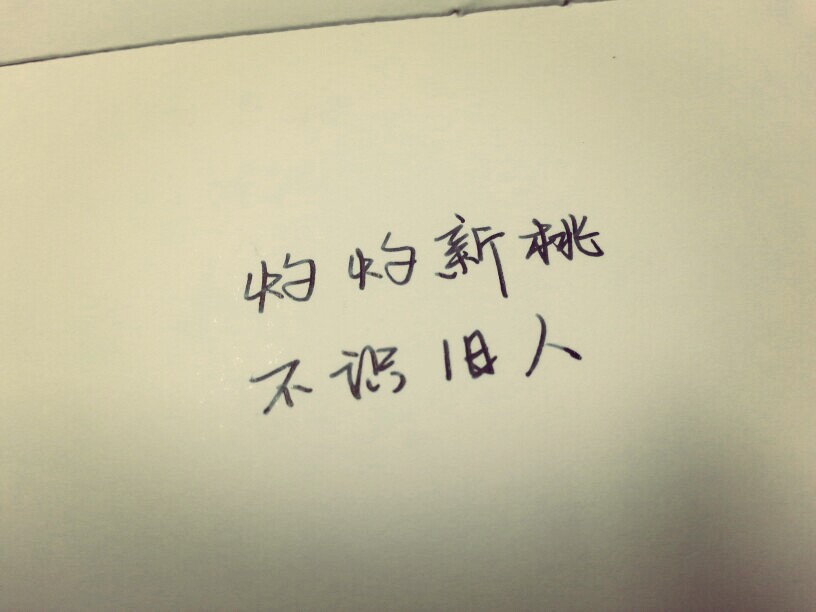 灼灼新桃
不识旧人